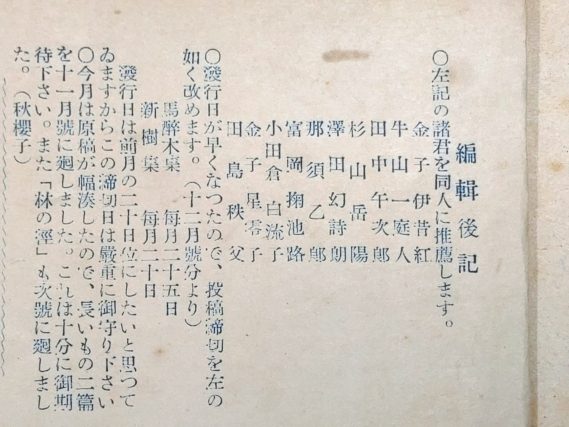 編輯後記
○左記の諸君を同人に推薦します。
金子伊昔紅
牛山一庭人
田中午次郎
杉山岳陽
澤田幻詩朗
那須乙郎
富岡掬池路
小田倉白流子
金子星零子
田島秩父
○發行日が早くなつたので、投稿締切を左の
如く改めます。（十二月號分より）
馬醉木集 每月二十五日
新樹集 每月二十日
發行日は前月の二十日位にしたいと思つて
ゐますからこの締切日は嚴重に御守り下さい
○今月は原稿が輻湊したので、長いもの二篇
を十一月號に廻しました。これは十分に御期
待下さい。また「林の徑」も次號に廻しまし
た。（秋櫻子）